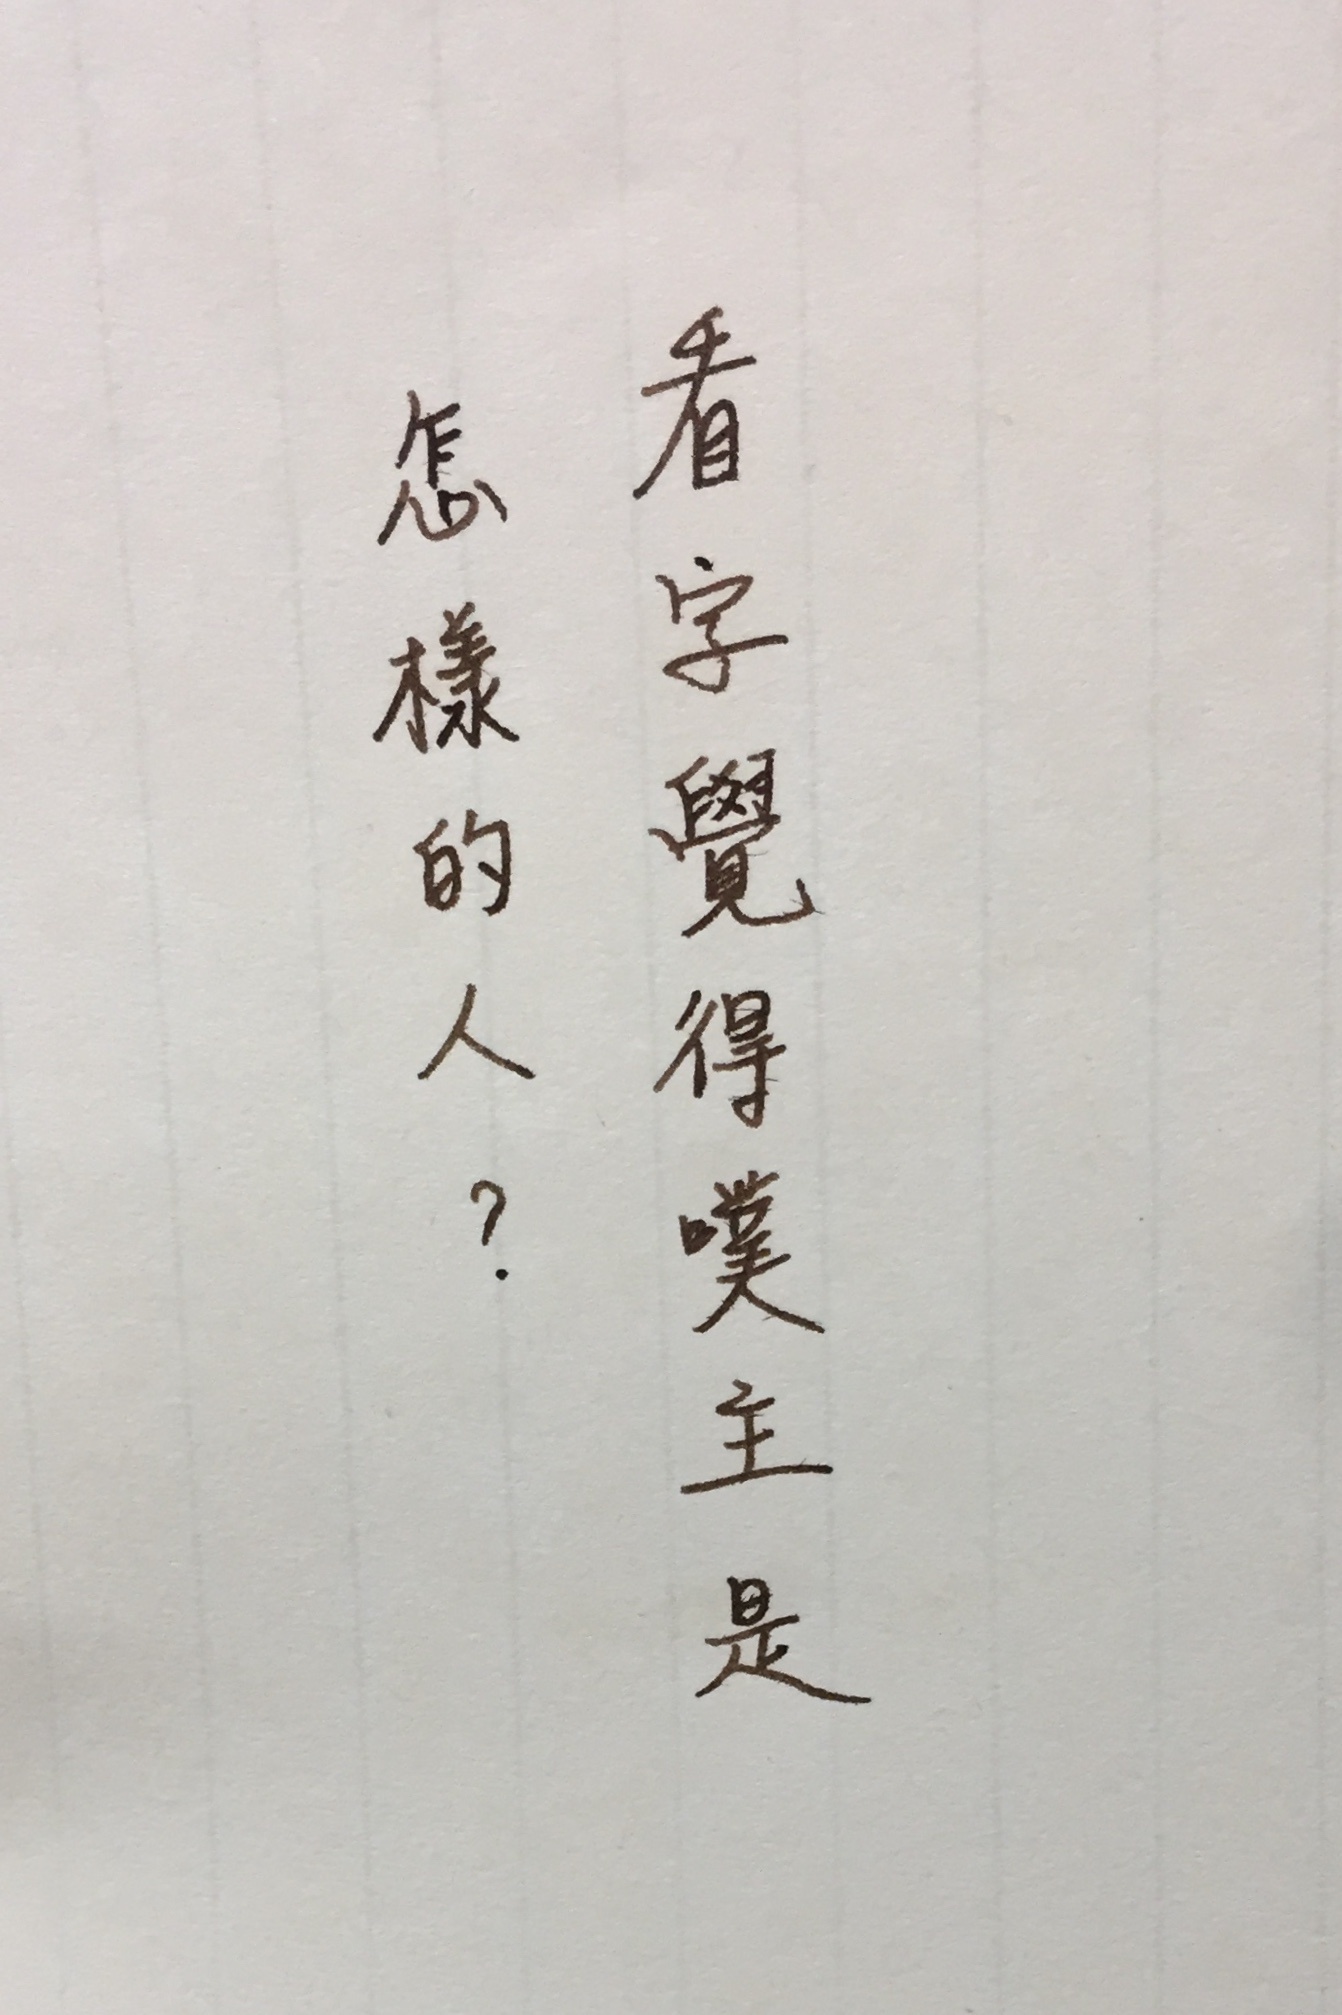 看字覺得噗主是
怎樣的人？